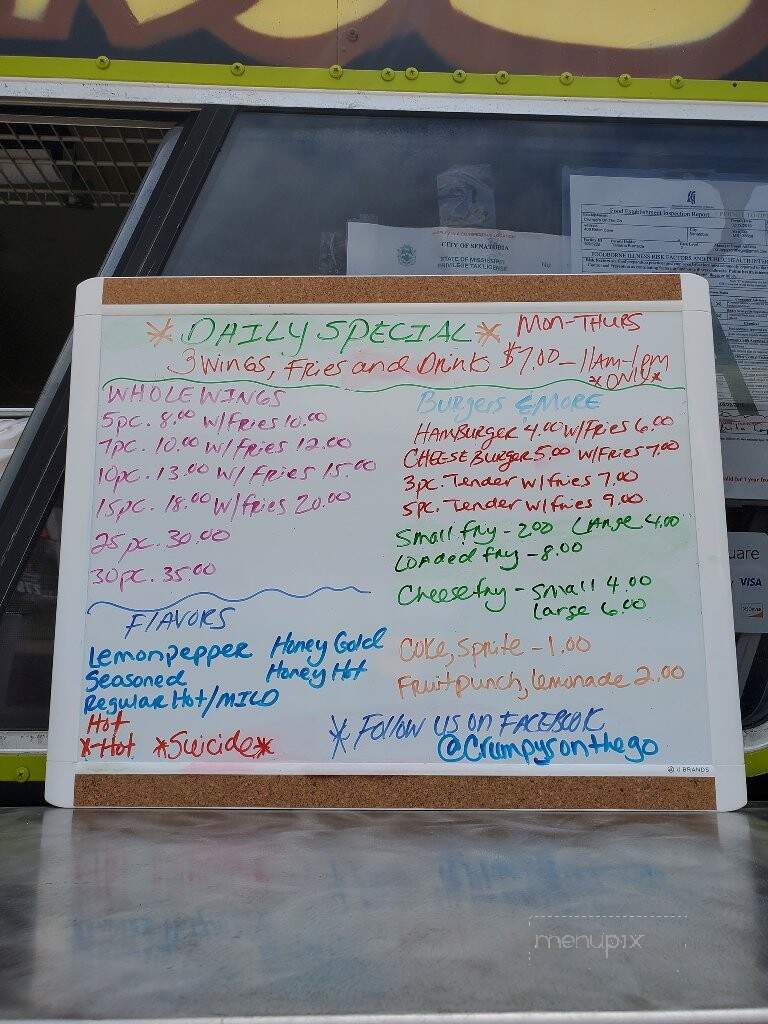 CITY OF SENATOBIA
STATE OF MISSISSIPPI
PRIVILEGE TAX LICENSE
Food Establishment Inspection Report
FOODBORNE ILLNESS RISK FACTORS AND PUBLIC HEALTH
*DAILY SPECIAL* MON-THURS
3 Wings, Fries and Drink $7.00-11AM-1pm
*ONLY*
WHOLE WINGS
5pc. 8.00 W/Fries 10.00
7pc. 10.00 W/Fries 12.00
10pc. 13.00 W/ Fries 15.00
15pc. 18.00 W/Fries 20.00
25pc. 30.00
30pc. 35.00
FLAVORS
Lemonpepper Honey Gold
Seasoned Honey Hot
Regular Hot/MILD
Hot
X-Hot *Suicide*
Burgers & MORE
HAMBURGER 4.00 W/FRIES 6.00
CHEESE Burger 5.00 W/FRIES 7.00
3pc. Tender W/fries 7.00
5pc. Tender W/fries 9.00
Small fry - 200 LARGE 4.00
LOADED fry - 8.00
Cheese fry - small 4.00
Large 6.00
Coke, Sprite - 1.00
Fruit punch, lemonade 2.00
* Follow us on FACEBOOK
@Crumpysonthego
U BRANDS
uare
VISA
menupix